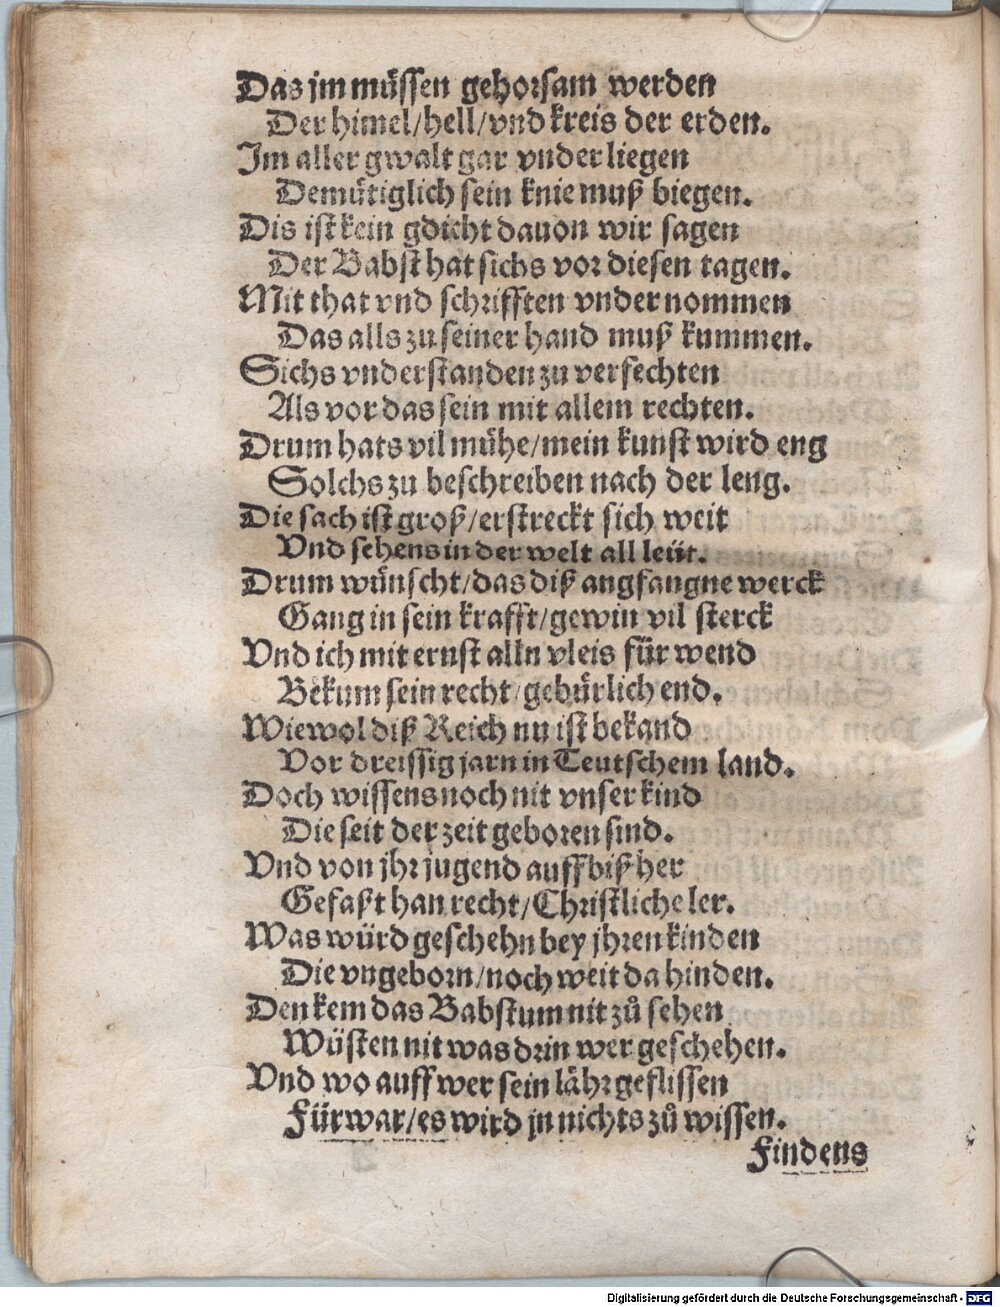 Das jm müssen gehorsam werden
Der himel/hell/vnd kreis der erden.
Im aller gwalt gar vnder liegen
Demütiglich sein knie muß biegen.
Dis ist kein gdicht dauon wir sagen
Der Babst hat sichs vor diesen tagen.
Mit that vnd schrifften vndernommen
Das alls zu seiner hand muß kummen.
Sichs vnderstanden zu verfechten
Als vor das sein mit allem rechten.
Drum hats vil mühe/mein kunst wird eng
Solchs zu beschreiben nach der leng.
Die sach ist groß/erstreckt sich weit
Vnd sehens in der welt all leüt.
Drum wünscht/das diß angfangne werck
Gang in sein krafft/gewin vil sterck
Vnd ich mit ernst alln vleis für wend
Bekum sein recht/gebürlich end.
Wiewol diß Reich nu ist bekand
Vor dreissig jarn in Teutschem land.
Doch wissens noch nit vnser kind
Die seit der zeit geboren sind.
Vnd von jhr jugend auff biß her
Gefaßt han recht/Christliche ler.
Was würd geschehn bey jhren kinden
Die vngeborn/noch weit da hinden.
Den kem das Babstum nit zů sehen
Wüsten nit was drin wer geschehen.
Vnd wo auff wer sein lähr geflissen
Fürwar/es wird jn nichts zů wissen.
Findens
Digitalisierung gefördert durch die Deutsche Forschungsgemeinschaft - DFG